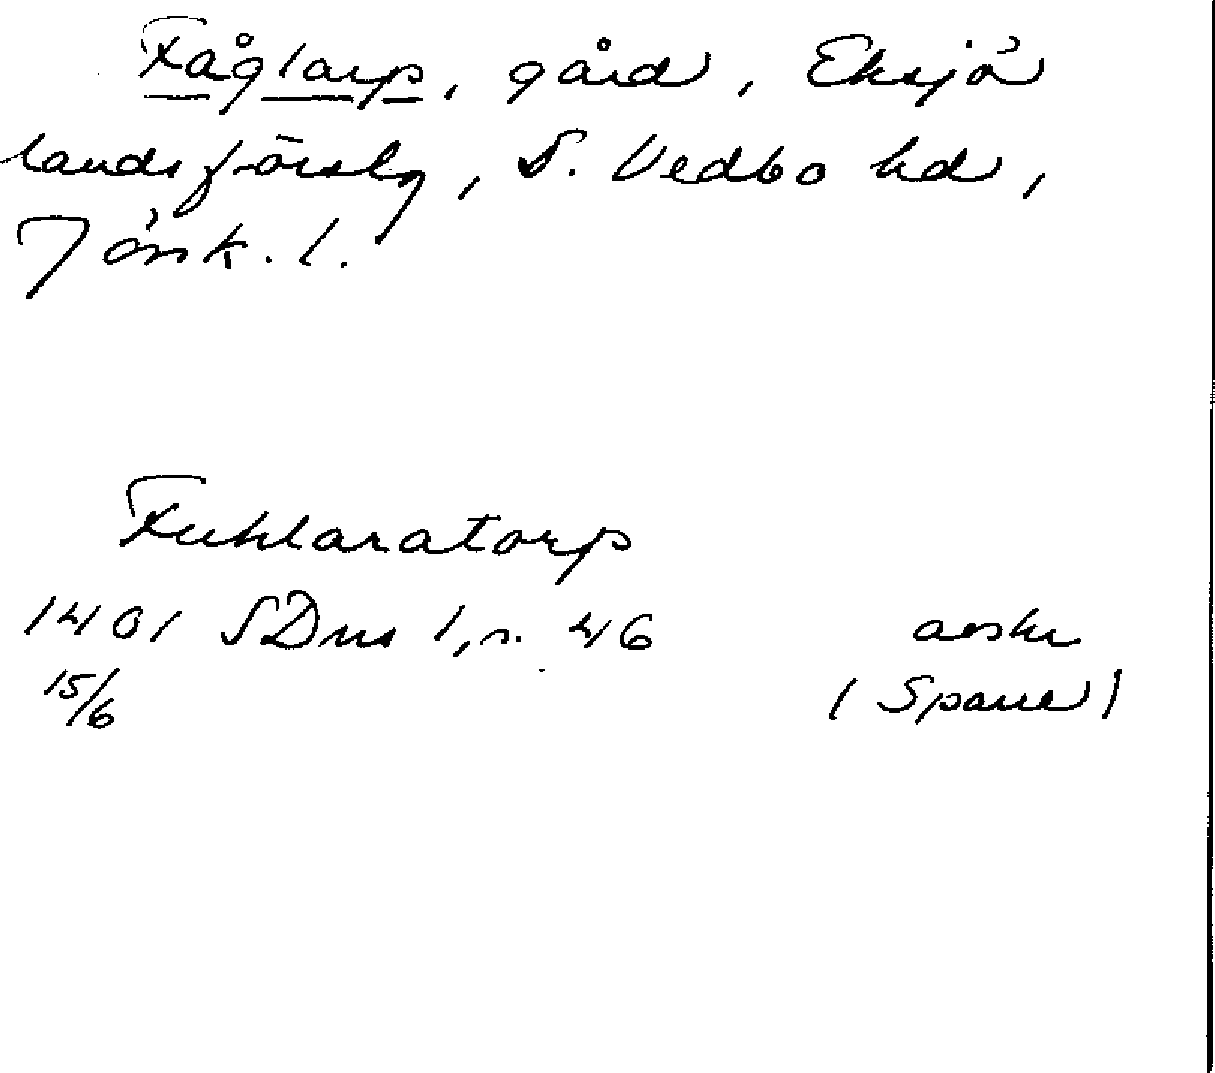 Fåglarp, gård, Eksjö
landsförslg, S. Vedbo hd,
Jönk. l.
Fuhlaratorp
1401 SDns 1, s. 46 avskr
15/6 (Sparre)